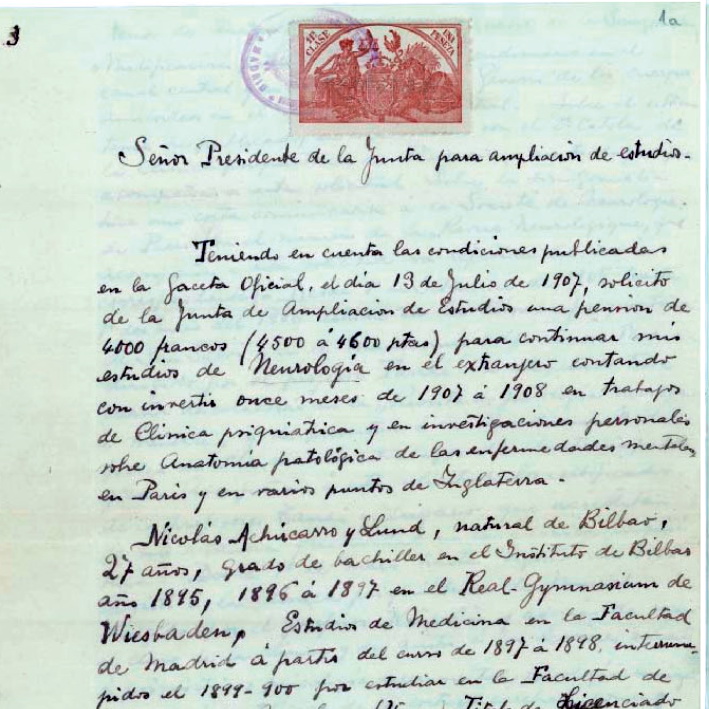 3
1a
11ª CLASE
UNA PESETA
Señor Presidente de la Junta para ampliación de estudios.
Teniendo en cuenta las condiciones publicadas
en la Gaceta Oficial, el día 13 de Julio de 1907, solicito
de la Junta de Ampliacion de Estudios una pension de
4000 francos (4500 á 4600 ptas) para continuar mis
estudios de Neurología en el extranjero contando
con invertir once meses de 1907 á 1908 en trabajos
de Clínica psiquiatrica y en investigaciones personales
sobre Anatomía patológica de las enfermedades mentales
en Paris y en varios puntos de Inglaterra.
Nicolás Achúcarro y Lund, natural de Bilbao,
27 años, grado de bachiller en el Instituto de Bilbao
año 1895, 1896 á 1897 en el Real-Gymnasium de
Wiesbaden, Estudios de Medicina en la Facultad
de Madrid á partir del curso de 1897 á 1898, interrum-
pidos el 1899-900 por estudiar en la Facultad de
Titulo de Licenciado